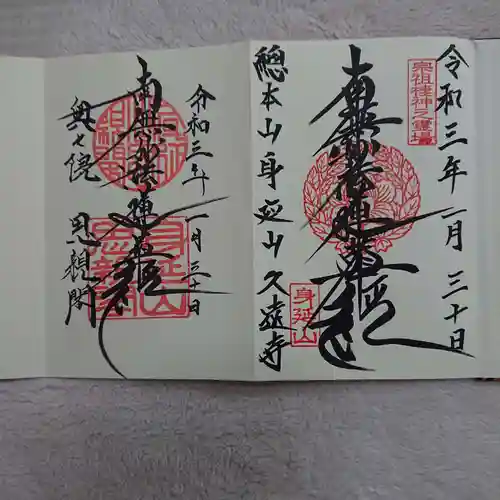 令和三年一月三十日
宗祖棲神之霊場
南無妙法蓮華経
身延山
總本山身延山久遠寺
令和三年一月三十日
南無妙法蓮華経
身延山
思親閣
奥之院 思親閣